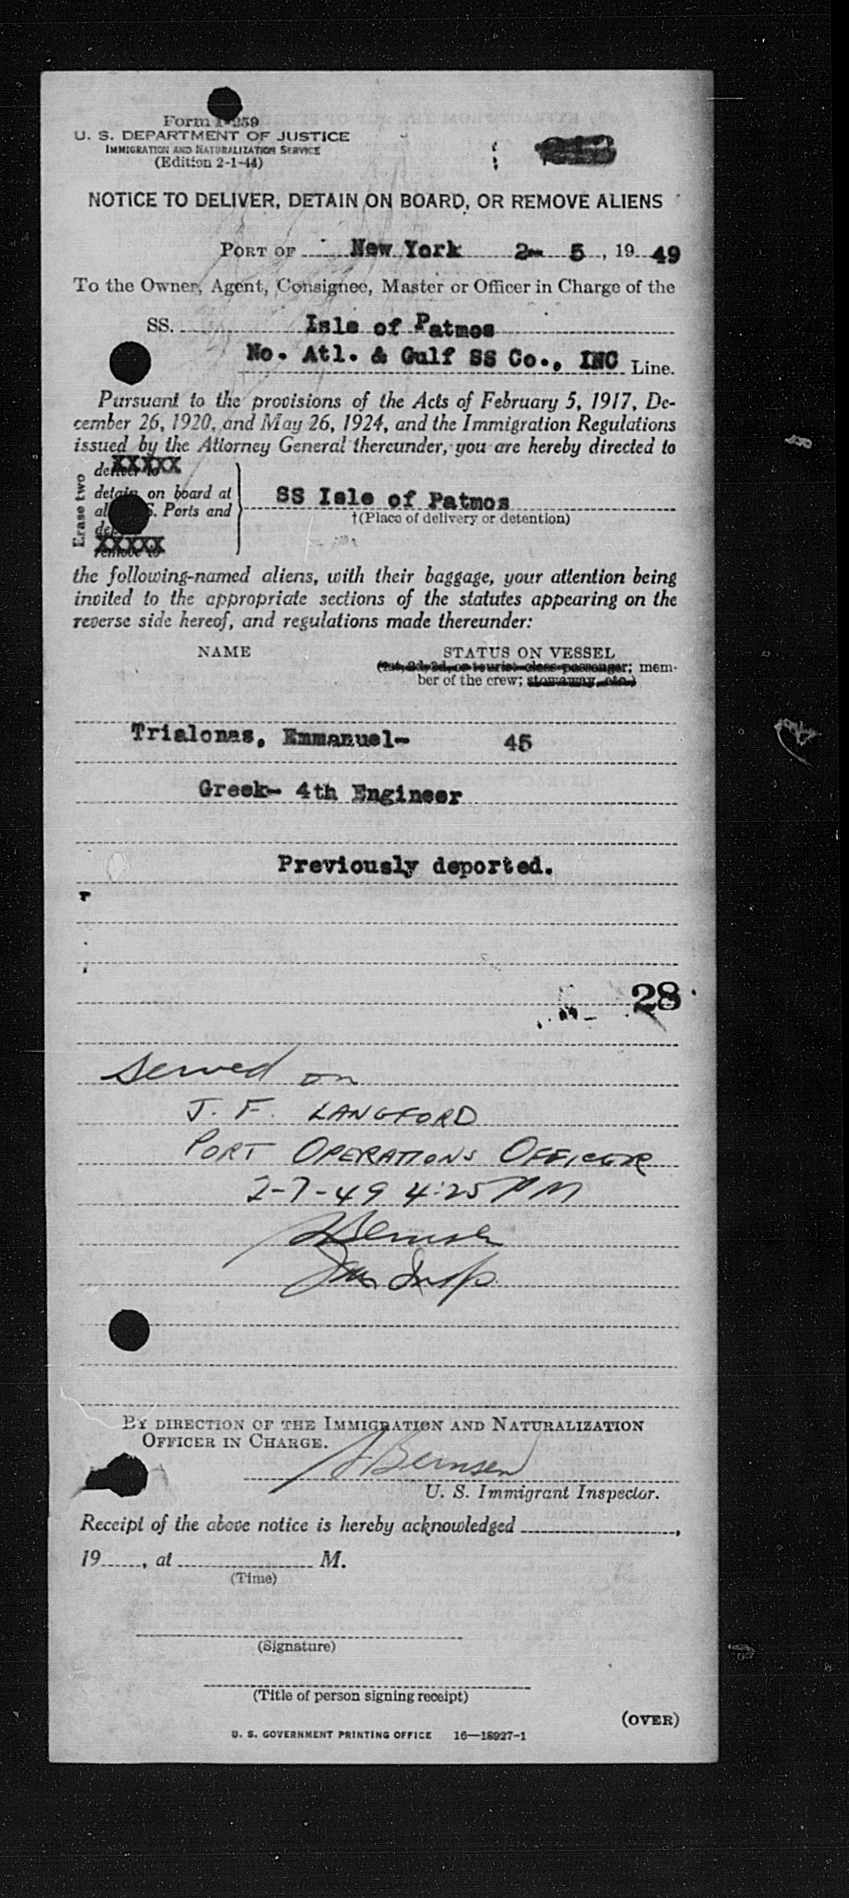 Form I-259
U. S. DEPARTMENT OF JUSTICE
IMMIGRATION AND NATURALIZATION SERVICE
(Edition 2-1-44)
NOTICE TO DELIVER, DETAIN ON BOARD, OR REMOVE ALIENS
PORT OF New York 2- 5, 1949
To the Owner, Agent, Consignee, Master or Officer in Charge of the
SS. Isle of Patmos
No. Atl. & Gulf SS Co., INC Line.
Pursuant to the provisions of the Acts of February 5, 1917, De-
cember 26, 1920, and May 26, 1924, and the Immigration Regulations
issued by the Attorney General thereunder, you are hereby directed to
Erase two
deliver to XXXXX
detain on board at
all U.S. Ports and
SS Isle of Patmos
†(Place of delivery or detention)
XXXXX
remove to
the following-named aliens, with their baggage, your attention being
invited to the appropriate sections of the statutes appearing on the
reverse side hereof, and regulations made thereunder:
NAME STATUS ON VESSEL
(1st, 2d, 3d, or tourist-class passenger; mem-
ber of the crew; stowaway, etc.)
Trialonas, Emmanuel- 45
Greek- 4th Engineer
Previously deported.
28
Served on
J. F. LANGFORD
PORT OPERATIONS OFFICER
2-7-49 4:25 PM
Bernsen
Imm Insp.
BY DIRECTION OF THE IMMIGRATION AND NATURALIZATION
OFFICER IN CHARGE.
Bernsen
U. S. Immigrant Inspector.
Receipt of the above notice is hereby acknowledged ,
19 , at M.
(Time)
(Signature)
(Title of person signing receipt)
(OVER)
U. S. GOVERNMENT PRINTING OFFICE 16—18927-1